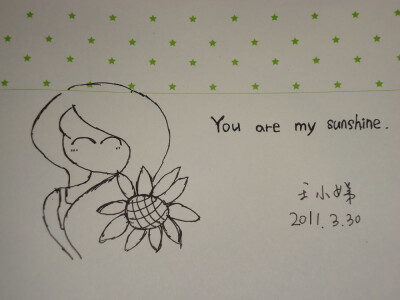 You are my sunshine.
王小娣
2011.3.30